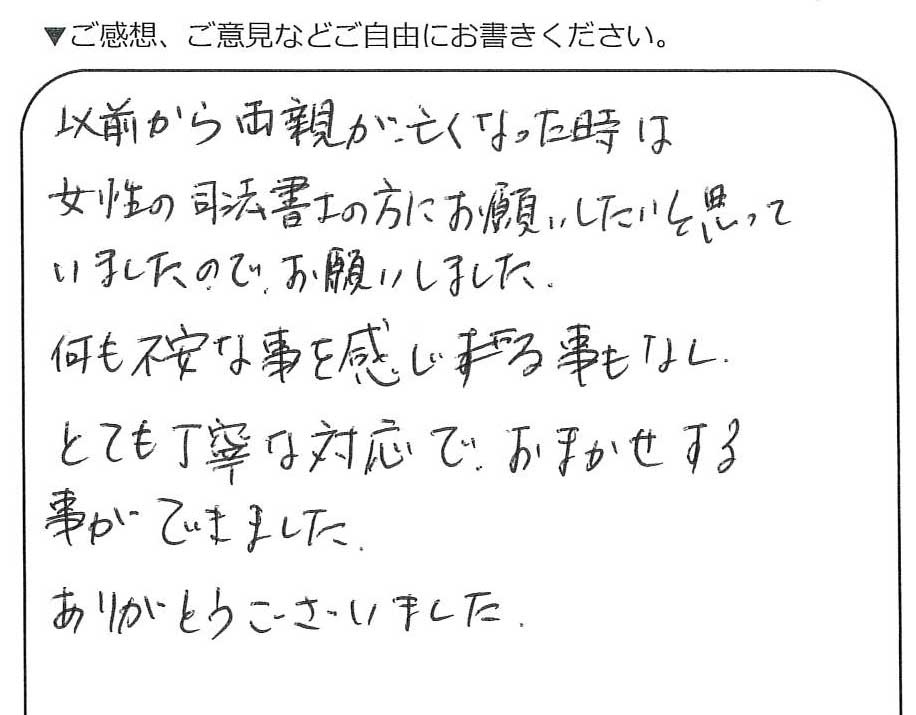 ▼ご感想、ご意見などご自由にお書きください。
以前から両親が亡くなった時は
女性の司法書士の方にお願いしたいと思って
いましたので、お願いしました。
何も不安な事を感じる事もなし、
とても丁寧な対応で、おまかせする
事ができました。
ありがとうございました。